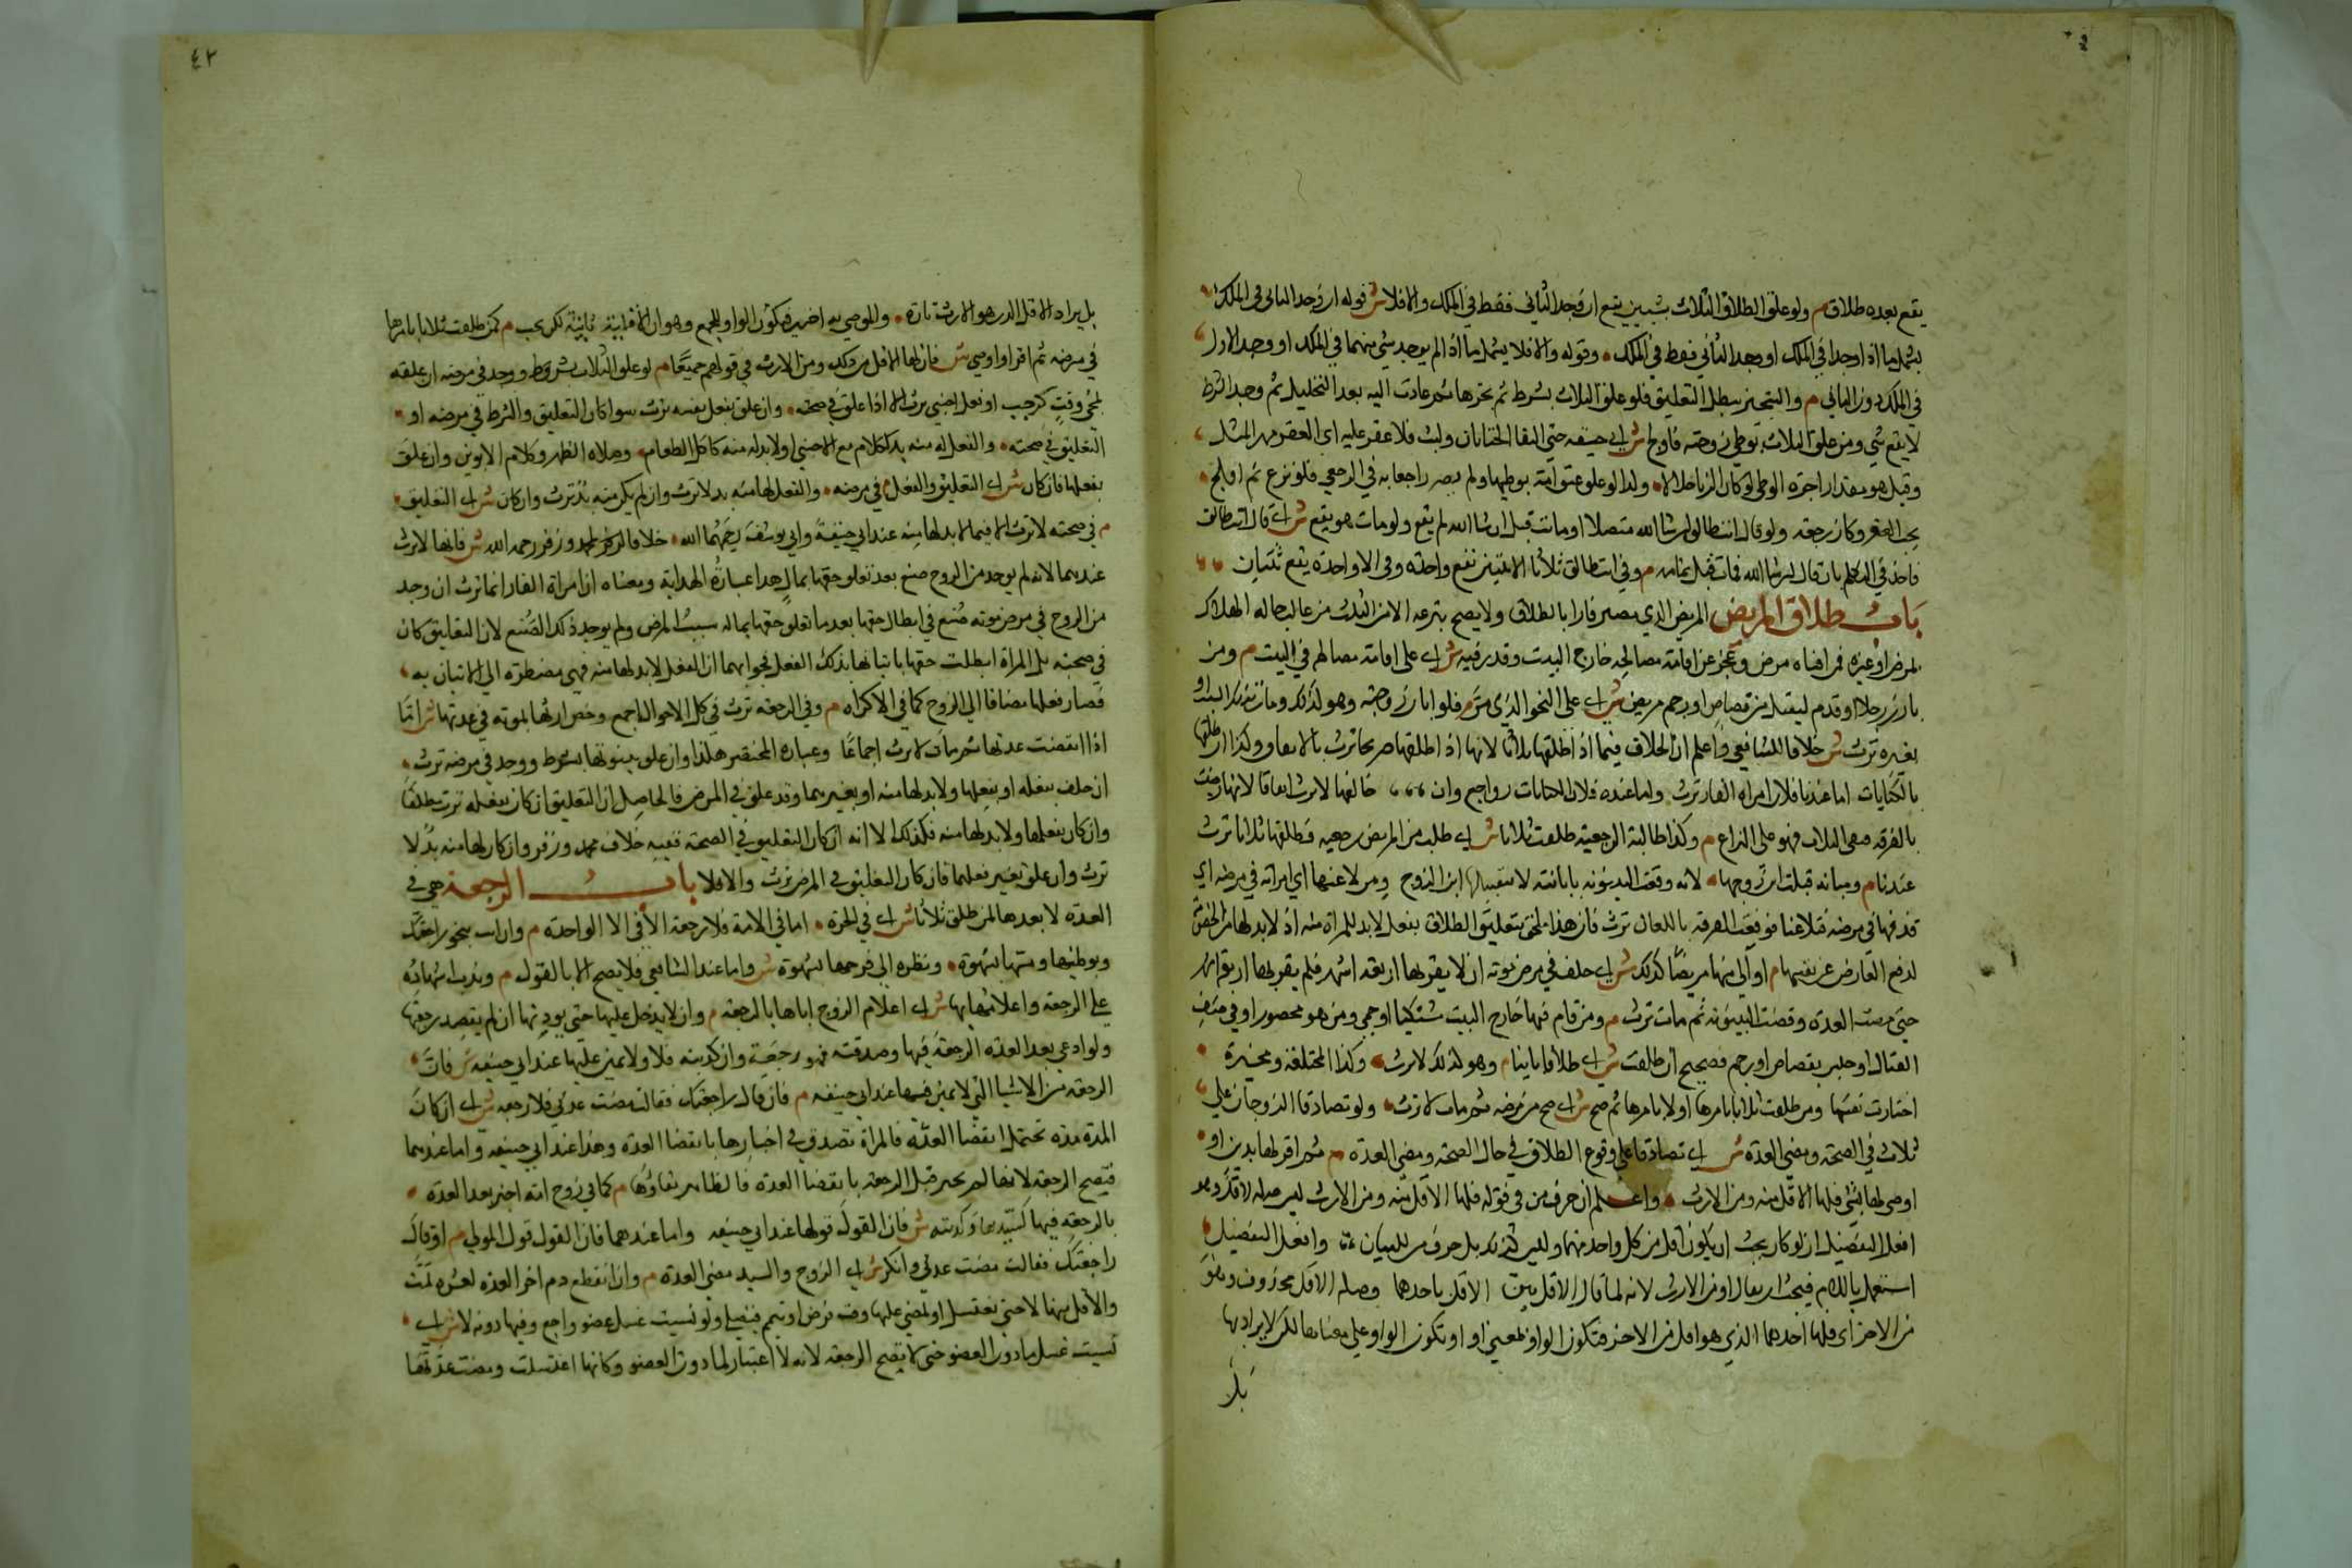 يقع بعده طلاق م ولو علق الطلاق الثلاث بشيين يقع ان وجد الثاني فقط في الملك والا فلا ش قوله ان وجد الثاني في الملك
يشمل ما اذا وجدا في الملك او وجد الثاني فقط في الملك وقوله والا فلا يشمل ما اذا لم يوجد شي منهما في الملك او وجد الاول
في الملك دون الثاني م والتنجيز يبطل التعليق فلو علق الثلاث بشرط ثم نجزها ثم عادت اليه بعد التحليل ثم وجد الشرط
لا يقع شي ومن علق الثلاث بوطي زوجته فاولج ش اي حشفته حتى التقا الختانان ولبث فلا عقر عليه اي العقر مهر المثل
وقيل هو مقدار اجرة الوطي لو كان الزنا حلالا ولذا لو علق عتق امته بوطيها ولم يصر راجعا به في الرجعي فلو نزع ثم اولج
يجب العقر وكان رجعة ولو قال انت طالق ان شا الله متصلا او ماتت قبل ان شا الله لم يقع ولو مات هو يقع ش اي قال انت طالق
فاخذ في التكلم بان قال ان شا الله فمات قبل تمامه م وفي انت طالق ثلاثا الا ثنتين تقع واحدة وفي الا واحدة يقع ثنتان
باب طلاق المريض المريض الذي يصير فارا بالطلاق ولا يصح تبرعه الا من الثلث من غالب حاله الهلاك
لمرض او غيره فمن اضناه مرض وعجز عن اقامة مصالحه خارج البيت وقدر فيه ش اي على اقامة مصالحه في البيت م ومن
بارز رجلا او قدم ليقتل من قصاص او رجم مريض ش اي على النحو الذي مر م فلو ابان زوجته وهو كذلك ومات بذلك السبب او
بغيره ترث ش خلافا للشافعي واعلم ان الخلاف فيما اذا طلقها ثلاثا لانها اذا طلقها صريحا ترث بالاتفاق وكذا ان طلقها
بالكنايات اما عندنا فلان امراة الفار ترث واما عنده فلان الكنايات رواجع وان خالعها لا ترث اتفاقا لانها رضيت
بالفرقة ففي الثلاث فهو على النزاع م وكذا طالبة الرجعية طلقت ثلاثا ش اي طلبت من المريض رجعية فطلقها ثلاثا ترث
عندنا م ومبانة قبلت ابن زوجها لانه وقعت البينونة بابانته لا بتقبيلها ابن الزوج ومن لاعنها اي امراته في مرضه اي
قذفها في مرضه فتلاعنا فوقعت الفرقة باللعان ترث فان هذا ملحق بتعليق الطلاق بفعل لا بد للمراة منه اذ لا بد لها من الخصومة
لدفع العار عن نفسها م او آلي منها مريضا كذلك ش اي حلف في مرض موته ان لا يقربها اربعة اشهر فلم يقربها اربعة اشهر
حتى مضت العدة وقضت البينونة ثم مات ترث م ومن قام فيها خارج البيت مشتكيا او حمي ومن هو محصور او في صف
القتال او حبس بقصاص او رجم فصحيح ان طلقت ش اي طلاقا باينا م وهو كذلك لا ترث وكذا المختلعة ومخيرة
اختارت نفسها ومن طلقت ثلاثا بامرها او لا بامرها ثم صح ش اي صح من مرضه ثم مات لا ترث ولو تصادقا الزوجان على
ثلاث في الصحة ومضي العدة ش اي تصادقا على وقوع الطلاق في حال الصحة ومضي العدة م ثم اقر لها بدين او
اوصي لها بشي فلها الاقل منه ومن الارث واعلم ان حرف من في قوله فلها الاقل منه ومن الارث ليس صلة لا قل
افعل التفضيل اذ لو كان يجب ان يكون اقل من كل واحد منهما وليس كذلك بل حرف من للبيان وافعل التفضيل
استعمل باللام فيجب ان يقال او من الارث لانه لما قال الاقل بين الاقل باحدهما وصلة الاقل محذوف وهو
من الاخر اي فلها احدهما الذي هو اقل من الاخر فتكون الواو بمعني او او تكون الواو على معناها لكن لا يراد بها
بل
٤٢
بل يراد الاقل الذي هو الارث تارة والموصي به اخري فتكون الواو للجمع وهو ان الاقلية ثابتة لكن يجب م كمن طلقت ثلاثا بامرها
في مرضه ثم اقر او اوصي ش فان لها الاقل من ذلك ومن الارث في قولهم جميعا م لو علق الثلاث بشرط ووجد في مرضه ان علقه
بمجي وقت كرجب او فعل اجنبي ترث الا اذا علق في صحته وان علق بفعل نفسه ترث سوا كان التعليق والشرط في مرضه او
التعليق في صحته والفعل له منه بد ككلام مع الاجنبي او لا بد له منه كاكل الطعام وصلاة الظهر وكلام الابوين وان علق
بفعلها فان كان ش اي التعليق والفعل م في مرضه والفعل لها منه بد لا ترث وان لم يكن منه بد ترث وان كان ش اي التعليق
م في صحته لا ترث الا فيما لا بد لها منه عند ابي حنيفة وابي يوسف رحمهما الله خلافا لمحمد وزفر رحمه الله ش فانها لا ترث
عندهما لانه لم يوجد من الزوج صنع بعد تعلق حقها بمال هذا عبارة الهداية ومعناه ان امراة الفار انما ترث ان وجد
من الزوج في مرض موته صنع في ابطال حقها بعد ما تعلق حقها بماله بسبب المرض ولم يوجد ذلك الصنع لان التعليق كان
في صحته بل المراة ابطلت حقها باتيانها بذلك الفعل فجوابهما ان الفعل لا بد لها منه فهي مضطرة الي الاتيان به
فصار فعلها مضافا الي الزوج كما في الاكراه م وفي الرجعة ترث في كل الاحوال اجمع وخص ارثها بموته في عدتها ش اما
اذا انقضت عدتها ثم مات لا ترث اجماعا وعبارة المختصر هكذا وان علق بينونتها بشرط ووجد في مرضه ترث
ان حلف بفعله او بفعلها ولا بد لها منه او بغيرهما وقد علق في المرض فالحاصل ان التعليق ان كان بفعله ترث مطلقا
وان كان بفعلها ولا بد لها منه فكذلك الا انه ان كان التعليق في الصحة ففيه خلاف محمد وزفر وان كان لها منه بد لا
ترث وان علق بغير فعلهما فان كان التعليق في المرض ترث والا فلا باب الرجعة هي في
العدة لا بعدها لمن طلق ثلاثا ش اي في الحرة اما في الامة فلا رجعة الا في الا الواحدة م وان ابت بنحو راجعتك
وبوطئها ومسها بشهوة ونظره الي فرجها بشهوة ش واما عند الشافعي فلا يصح الا بالقول م وندب اشهاده
على الرجعة واعلامها بها ش اي اعلام الزوج اياها بالرجعة م وان لا يدخل عليها حتى يوذنها ان لم يقصد رجعتها
ولو ادعي بعد العدة الرجعة فيها وصدقته فهو رجعة وان كذبته فلا ولا يمين عليها عند ابي حنيفة ش فان
الرجعة من الاشيا التي لا يمين فيها عند ابي حنيفة م فان قال راجعتك فقالت مضت عدتي فلا رجعة ش اي ان كان
المدة مدة تحتمل انقضا العدة فالمراة تصدق في اخبارها بانقضا العدة وهذا عند ابي حنيفة واما عندهما
فتصح الرجعة لانها لم تخبر قبل الرجعة بانقضا العدة فالظاهر بقاؤها م كما في زوج امة اخبر بعد العدة
بالرجعة فيها لسيدها وكذبته ش فان القول قولها عند ابي حنيفة واما عندهما فان القول قول المولي م او قال
راجعتك فقالت مضت عدتي وانكر ش اي الزوج والسيد مضي العدة م وان انقطع دم اخر العدة لعشرة تمت
والاقل منها لا حتى تغتسل او يمضي عليها وقت فرض او تتيمم فتصلي ولو نسيت غسل عضو راجع وفيما دونه لا ش اي
نسيت غسل ما دون العضو حتى لا تصح الرجعة لانه لا اعتبار لما دون العضو وكانها اغتسلت ومضت عدتها